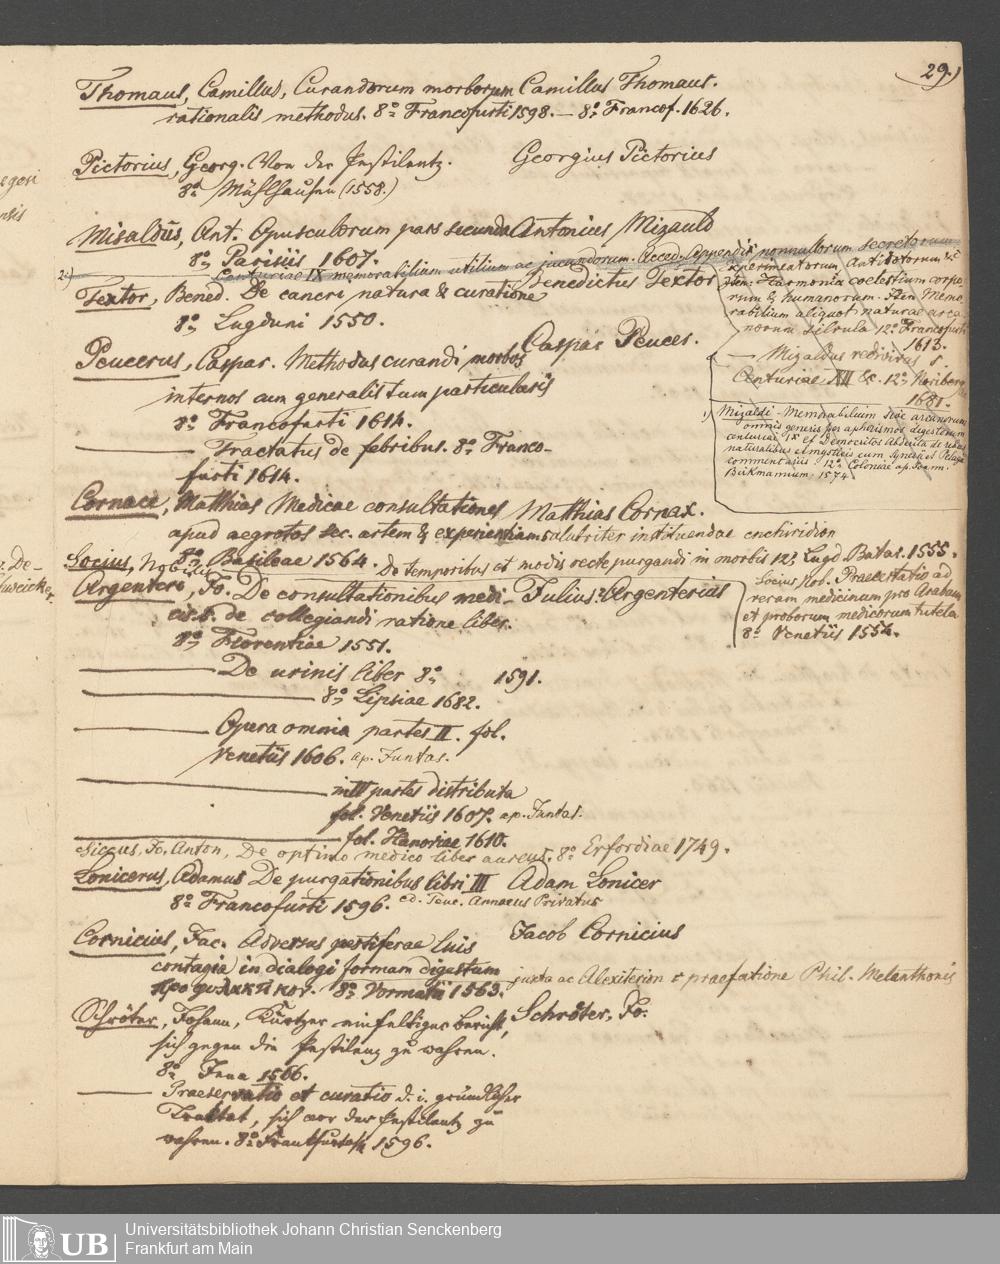 29.)
Thomaus, Camillus, Curandorum morborum Camillus Thomaus.
rationalis methodus. 8º Francofurti 1598. — 8º Francof. 1626.
Pictorius, Georg. Von der Pestilentz. Georgius Pictorius
8º Mühlhausen (1558.)
Misaldus, Ant. Opusculorum pars secunda Antonius Mizauld
8º Parisiis 1607.
2.) Centuriae IX memorabilium utilium ac jucundorum. Acced. Appendix nonnullorum secretorum
experimentorum, Antidotorum &c
Item: Harmonia coelestium corpo-
rum & humanorum. Item Memo-
rabilium aliquot naturae arca-
norum silvula 12º Francofurti
1613.
— Mizaldus redivivus s.
Centuriae XII &c. 12º Noriberg
1681.
1.) Mizaldi Memorabilium sive arcanorum
omnis generis per aphorismos digestorum
centuriae IX et Democritos Abderita de rebus
naturalibus et mysticis cum Synesii et Pelagii
commentariis. 12º Coloniae ap. Joann.
Birkmannum. 1574
Textor, Bened. De cancri natura & curatione Benedictus Textor
8º Lugduni 1550.
Peucerus, Caspar. Methodus curandi morbos Caspar Peuces.
internos cum generalis tum particularis
8º Francofurti 1614.
— Tractatus de febribus. 8º Franco-
furti 1614.
Cornace, Matthias Medicae consultationes Matthias Cornax.
apud aegrotos sec. artem & experientiam salubriter instituendae enchiridion
8º Basileae 1564.
Socius, Nobilis De temporibus et modis recte purgandi in morbis 12º Lugd. Batav. 1555.
Socius Nob. Praecertatio ad
veram medicinam pro Arabum
et proborum medicorum tutela
8º Venetiis 1554.
Argentero, Jo. De consultationibus medi- Julius Argenterius
cis s. de collegiandi ratione liber.
8º Florentiae 1551.
— De urinis liber 8º 1591.
— 8º Lipsiae 1682.
— Opera omnia partes II. fol.
Venetiis 1606. ap. Juntas.
— in III partes distributa
fol. Venetiis 1607. ap. Juntas.
— fol. Hanoviae 1610.
Siccus, Jo. Anton, De optimo medico liber aureus. 8º Erfordiae 1749.
Lonicerus, Adamus De purgationibus libri III Adam Lonicer
8º Francofurti 1596. ed. Teuc. Annaeus Privatus
Cornicius, Jac. Adversus pestiferae luis Jacob Cornicius
contagia in dialogi formam digestum
προφυλακτικον. 8º Vormatii 1563. juxta ac Alexiterion c praefatione Phil. Melanthonis
Schröter, Johann, Kurtzer einfeltiger bericht, Schröter, Jo.
sich gegen die Pestilenz zu wahren.
8º Jena 1566.
— Praeservatio et curatio d. i. gründlicher
Traktat, sich vor der Pestilentz zu
wahren. 8º Frankfurt a/M 1596.
Universitätsbibliothek Johann Christian Senckenberg
Frankfurt am Main
UB